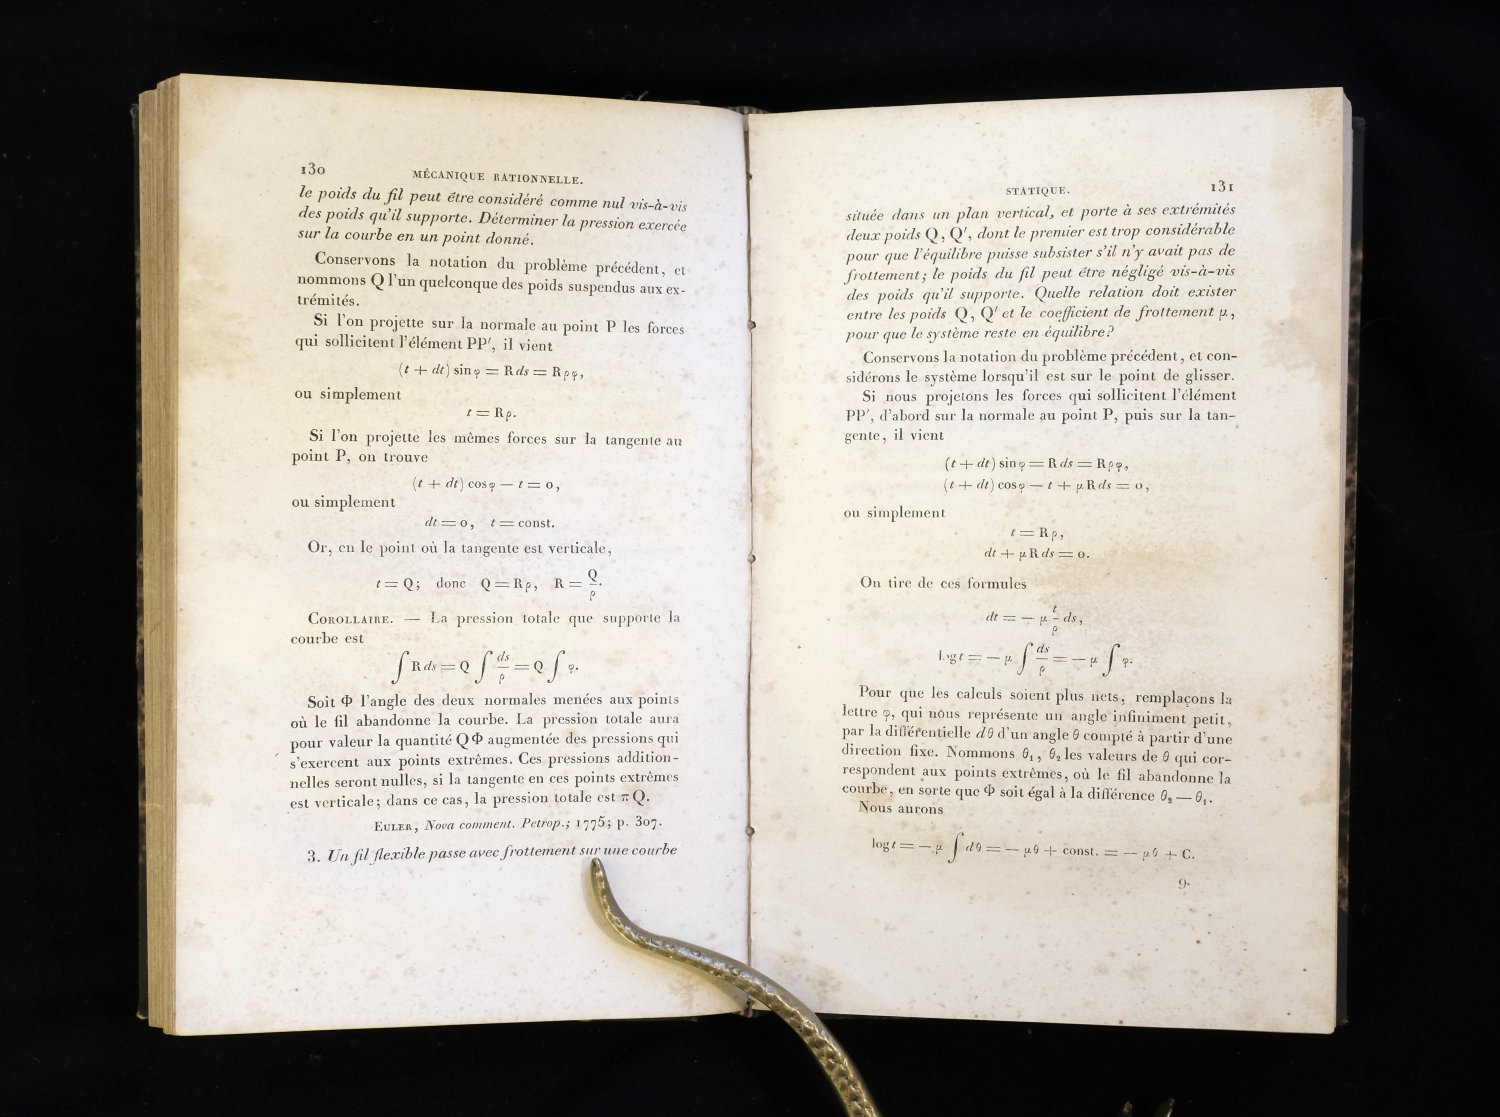 130 MÉCANIQUE RATIONNELLE.
le poids du fil peut être considéré comme nul vis-à-vis
des poids qu'il supporte. Déterminer la pression exercée
sur la courbe en un point donné.
Conservons la notation du problème précédent, et
nommons Q l'un quelconque des poids suspendus aux ex-
trémités.
Si l'on projette sur la normale au point P les forces
qui sollicitent l'élément PP′, il vient
(t + dt) sin φ = R ds = R ρ φ,
ou simplement
t = R ρ.
Si l'on projette les mêmes forces sur la tangente au
point P, on trouve
(t + dt) cos φ — t = 0,
ou simplement
dt = 0, t = const.
Or, en le point où la tangente est verticale,
t = Q; donc Q = R ρ, R = Q/ρ.
COROLLAIRE. — La pression totale que supporte la
courbe est
∫ R ds = Q ∫ ds/ρ = Q ∫ φ.
Soit Φ l'angle des deux normales menées aux points
où le fil abandonne la courbe. La pression totale aura
pour valeur la quantité QΦ augmentée des pressions qui
s'exercent aux points extrêmes. Ces pressions addition-
nelles seront nulles, si la tangente en ces points extrêmes
est verticale; dans ce cas, la pression totale est π Q.
EULER, Nova comment. Petrop.; 1775; p. 307.
3. Un fil flexible passe avec frottement sur une courbe
STATIQUE. 131
située dans un plan vertical, et porte à ses extrémités
deux poids Q, Q′, dont le premier est trop considérable
pour que l'équilibre puisse subsister s'il n'y avait pas de
frottement; le poids du fil peut être négligé vis-à-vis
des poids qu'il supporte. Quelle relation doit exister
entre les poids Q, Q′ et le coefficient de frottement μ,
pour que le système reste en équilibre?
Conservons la notation du problème précédent, et con-
sidérons le système lorsqu'il est sur le point de glisser.
Si nous projetons les forces qui sollicitent l'élément
PP′, d'abord sur la normale au point P, puis sur la tan-
gente, il vient
(t + dt) sin φ = R ds = R ρ φ,
(t + dt) cos φ — t + μ R ds = 0,
ou simplement
t = R ρ,
dt + μ R ds = 0.
On tire de ces formules
dt = — μ t/ρ ds,
log t = — μ ∫ ds/ρ = — μ ∫ φ.
Pour que les calculs soient plus nets, remplaçons la
lettre φ, qui nous représente un angle infiniment petit,
par la différentielle dθ d'un angle θ compté à partir d'une
direction fixe. Nommons θ₁, θ₂ les valeurs de θ qui cor-
respondent aux points extrêmes, où le fil abandonne la
courbe, en sorte que Φ soit égal à la différence θ₂ — θ₁.
Nous aurons
log t = — μ ∫ dθ = — μθ + const. = — μθ + C.
9.